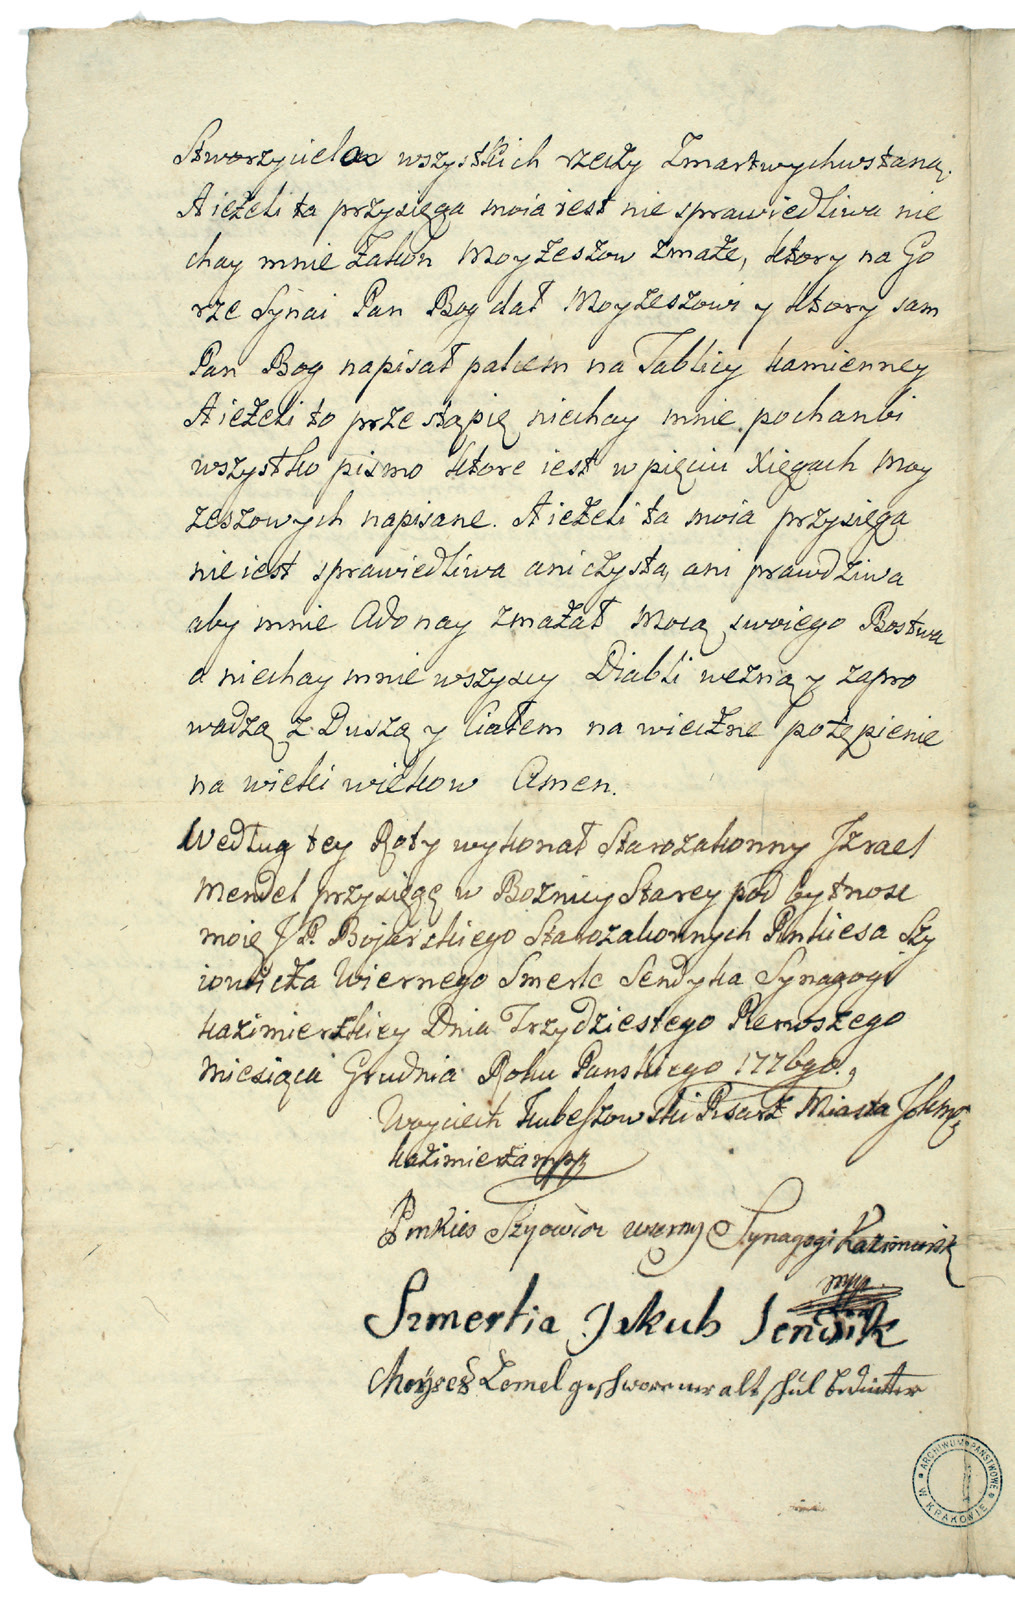 Stworzyciela wszystkich rzeczy Zmartwychwstaną.
A ieżeli ta przysięga moia iest nie sprawiedliwa nie
chay mnie Zakon Moyżeszow zmaże, ktory na Go
rze Synai Pan Bog dał Moyżeszowi y ktory sam
Pan Bog napisał palcem na Tablicy kamienney
A ieżeli to prze stąpię niechay mnie pochanbi
wszystko pismo ktore iest w pięciu Xięgach Moy
zeszowych napisane. A ieżeli ta moia przysięga
nie iest sprawiedliwa ani czysta, ani prawdziwa
aby mnie Adonay zmazał Mocą swoiego Bostwa
a niechay mnie wszyscy Diabli wezną y zapro
wadzą z Duszą y Ciałem na wieczne potępienie
na wieki wiekow Amen.
Według tey Roty wykonał Starozakonny Jzrael
Mendel przysięgę w Boznicy Starey pod bytnosc
moię JP. Bojarskiego Starozakonnych Pinkiesa Szy
iowicza Wiernego Smerle Sendyka Synagogi
Kazimierskiey Dnia Trzydziestego Pierwszego
Miesiąca Grudnia Roku Panskiego 1776go.
Woyciech Kubeszowski Pisarz Miasta
Kazimierza mpp
Pinkies Szyowicz wierny Synagogi Kazimirsk
mpp
Szmerlia Jakub Sendik
Moyses Lemel geschworener alt schul bedinter
ARCHIWUM PAŃSTWOWE W KRAKOWIE